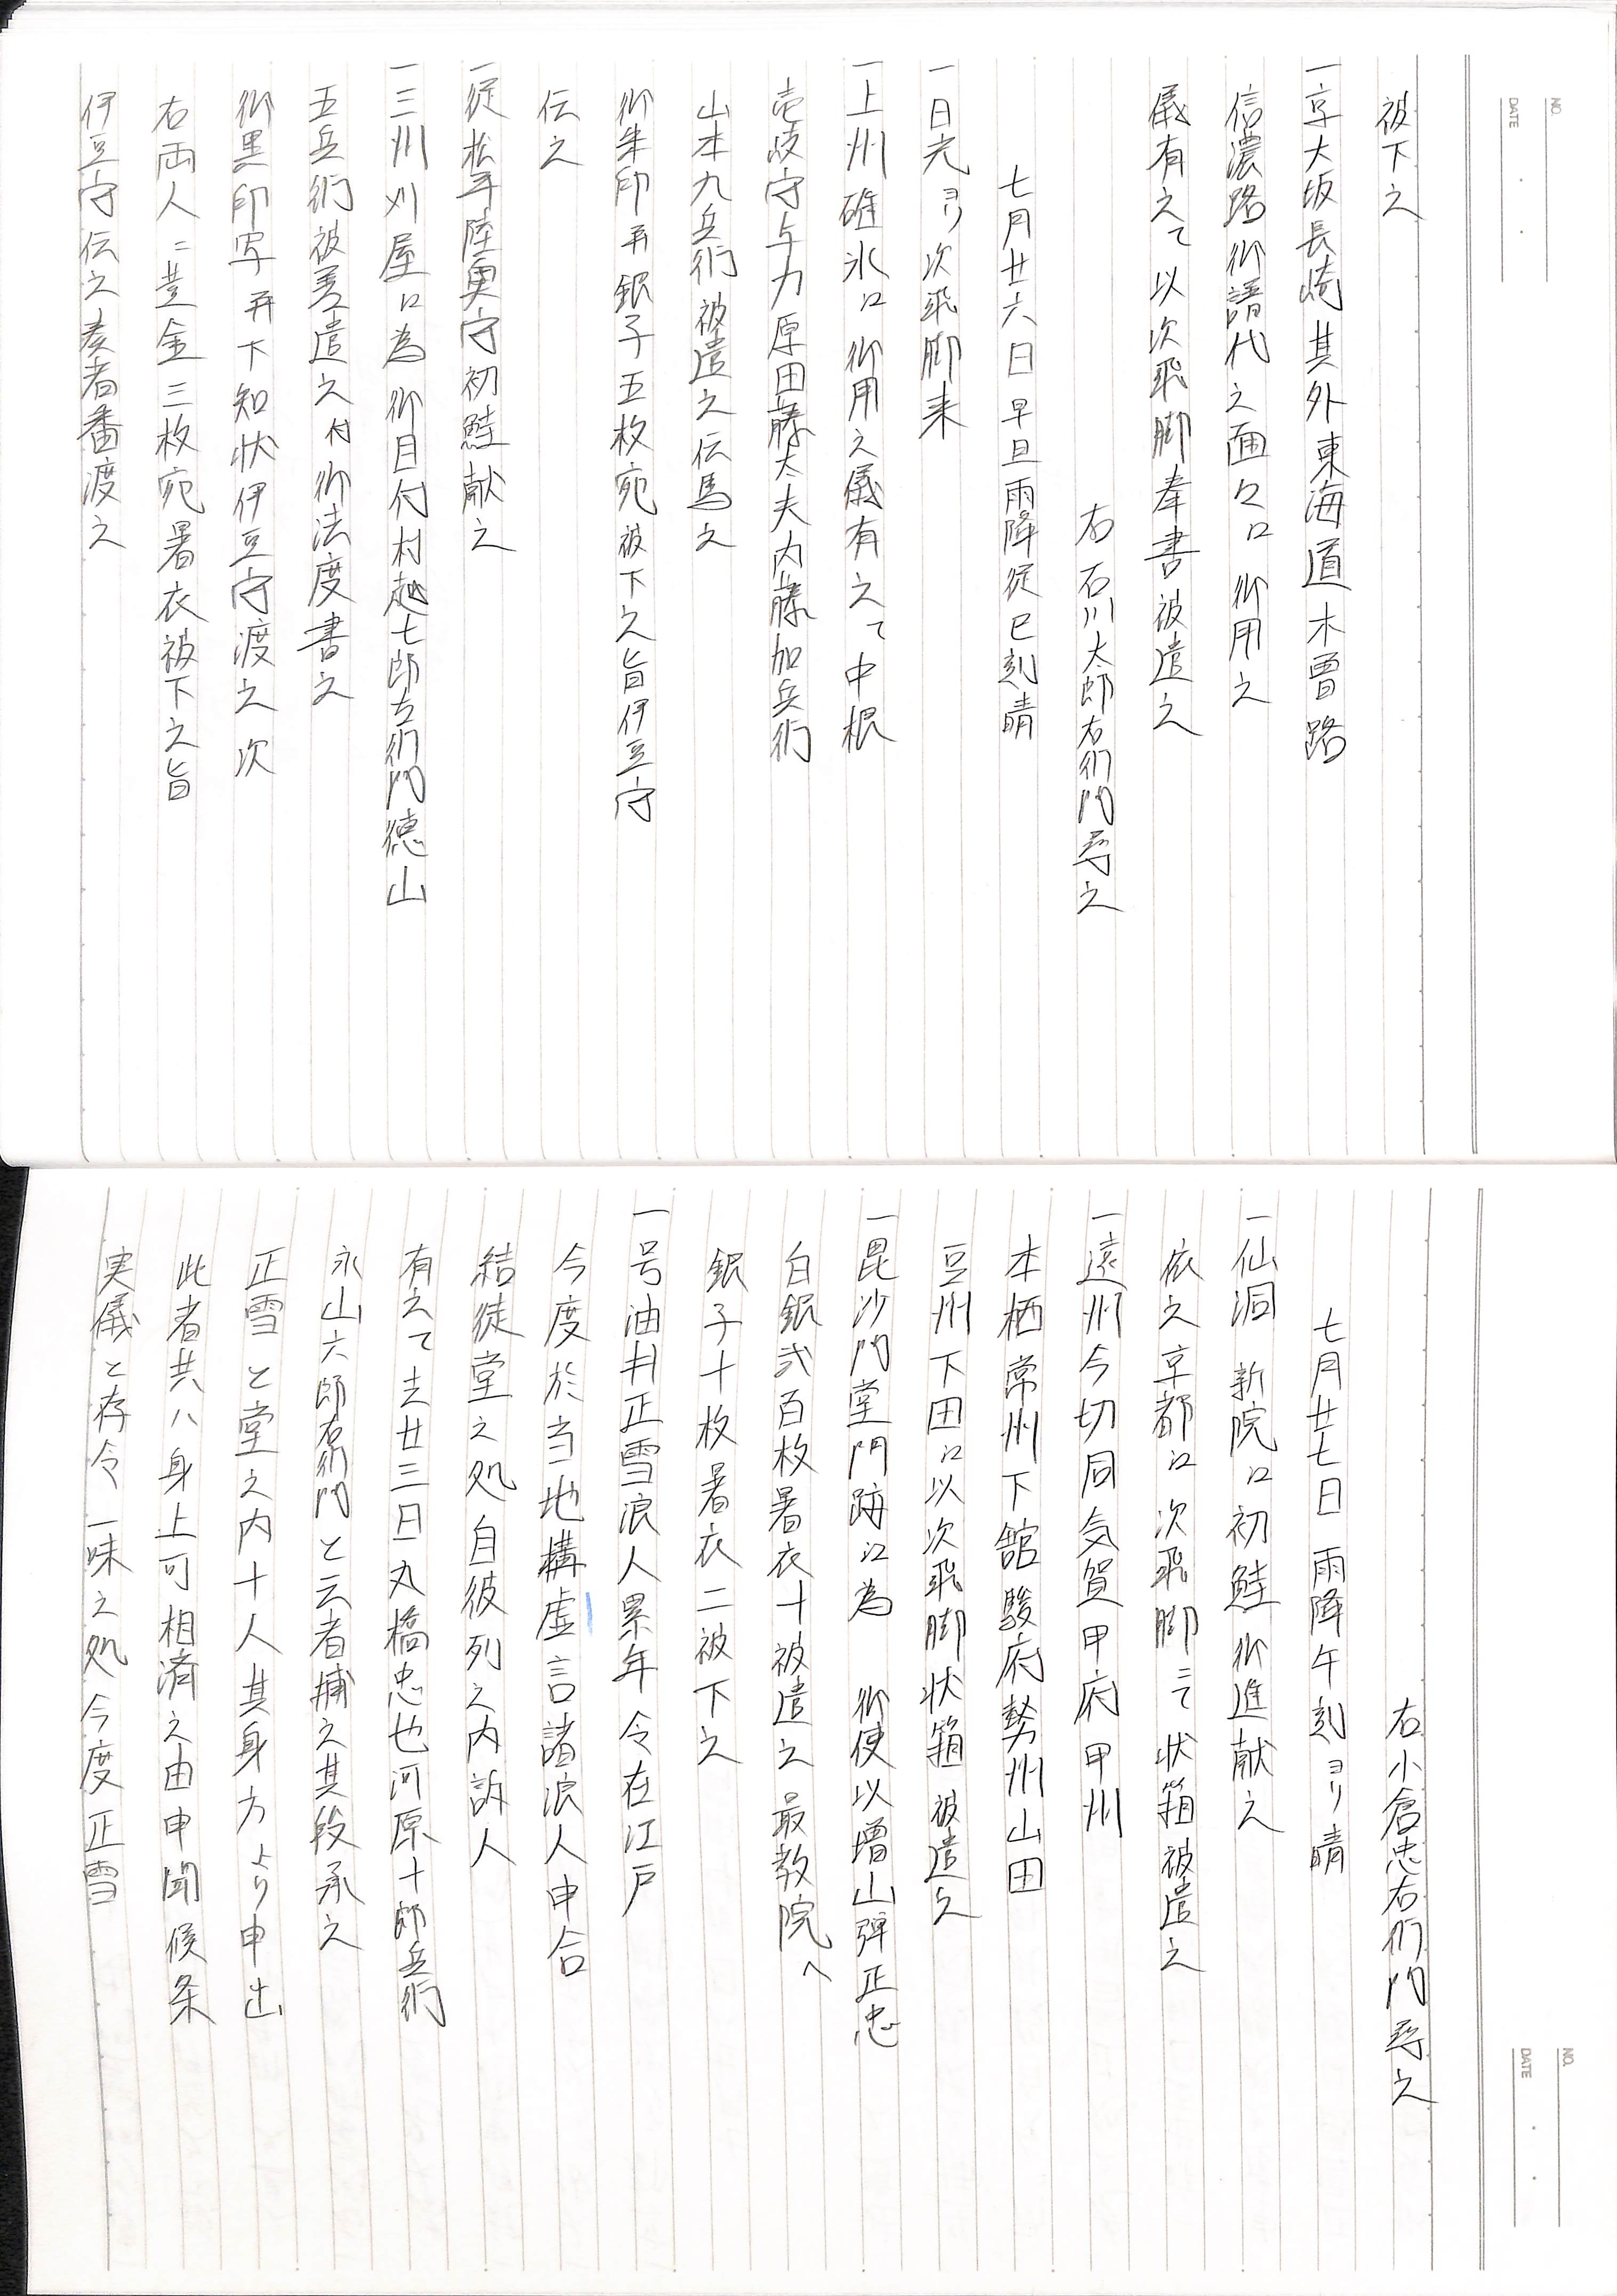 NO.
DATE
被下之
一京大坂長崎其外東海道木曽路
信濃路御譜代之面々江御用之
儀有之て以次飛脚奉書被遣之
右石川太郎右衛門尋之
七月廿六日早旦雨降従巳刻晴
一日光ヨリ次飛脚来
一上州碓氷江御用之儀有之て中根
壱岐守与力原田藤太夫内藤加兵衛
山本九兵衛被遣之伝馬之
御朱印并銀子五枚宛被下之旨伊豆守
伝之
一従松平陸奥守初鮭献之
一三州刈屋江為御目付村越七郎左衛門徳山
五兵衛被差遣之付御法度書之
御黒印写并下知状伊豆守渡之次
右両人ニ黄金三枚宛暑衣被下之旨
伊豆守伝之奏者番渡之
NO.
DATE
右小倉忠右衛門尋之
七月廿七日雨降午刻ヨリ晴
一仙洞 新院江初鮭御進献之
依之京都江次飛脚ニて状箱被遣之
一遠州今切同気賀甲府甲州
本栖常州下館駿府勢州山田
豆州下田江以次飛脚状箱被遣之
一毘沙門堂門跡江為 御使以増山弾正忠
白銀弐百枚暑衣十被遣之最教院へ
銀子十枚暑衣二被下之
一号油井正雪浪人累年令在江戸
今度於当地構虚言諸浪人申合
結徒堂之処自彼列之内訴人
有之て去廿三日丸橋忠也河原十郎兵衛
永山六郎右衛門と云者捕之其段承之
正雪と堂之内十人其身方より申出
此者共ハ身上可相済之由申聞候条
実儀と存令一味之処今度正雪